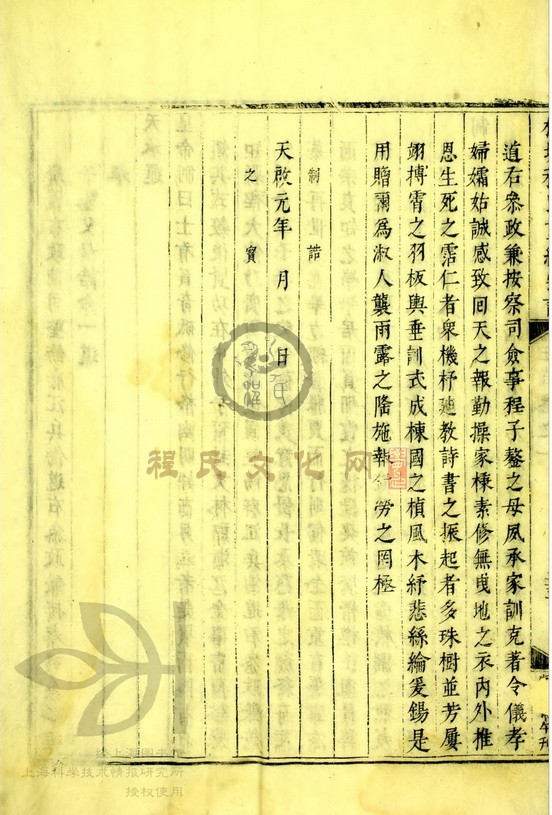 道右叅政兼按察司僉事程子鏊之母夙承家訓克著令儀孝
婦孀始誠感致回天之報勤操家棟素修無曳地之衣內外推
恩生死之霑仁者衆機杼廸教詩書之振起者多珠樹並芳屢
翊摶霄之羽板輿垂訓式成棟國之楨風木紓悲絲綸爰錫是
用贈爾為淑人襲雨露之隆施報
勞之罔極
制誥
天啟元年 月 日
之寳
程氏文化网
上海图书馆
上海科学技术情报研究所
授权使用